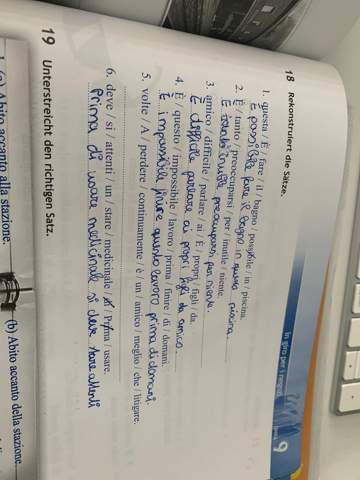 In giro per i negozi
9
18 Rekonstruiert die Sätze.
1. questa / È / fare / il / bagno / possibile / in / piscina.
È possibile fare il bagno in questa piscina.
2. È / tanto / preoccuparsi / per / inutile / niente.
È tanto inutile preoccuparsi per niente.
3. amico / difficile / parlare / ai / È / propri / figli / da.
È difficile parlare ai propri figli da amico.
4. È / questo / impossibile / lavoro / prima / finire / di / domani.
È impossibile finire questo lavoro prima di domani.
5. volte / A / perdere / continuamente / è / un / amico / meglio / che / litigare.
6. deve / si / attenti / un / stare / medicinale / di / Prima / usare.
Prima di usare medicinale si deve stare attenti
19 Unterstreicht den richtigen Satz.
1. (a) Abito accanto alla stazione.
(b) Abito accanto della stazione.